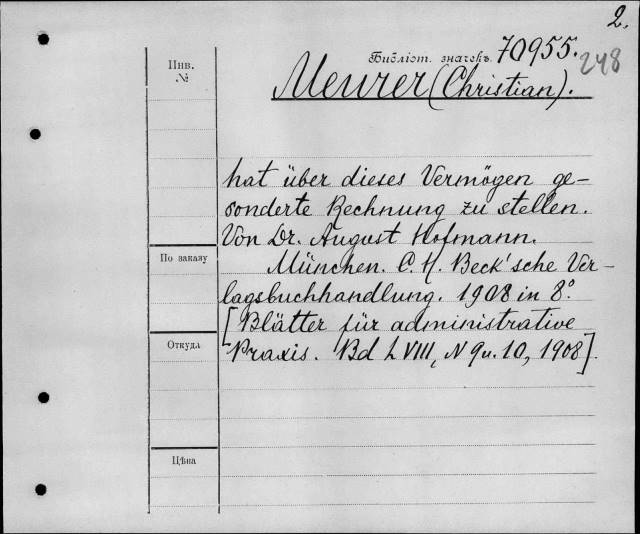 2.
Библіот. значекъ 70955.
248
Meurer (Christian).
Инв.
№
hat über dieses Vermögen ge-
sonderte Rechnung zu stellen.
Von Dr. August Hofmann.
München. C. H. Beck'sche Ver-
lagsbuchhandlung. 1908 in 8º.
[Blätter für administrative
Praxis. Bd LVIII, N 9 u. 10, 1908].
По заказу
Откуда
Цѣна